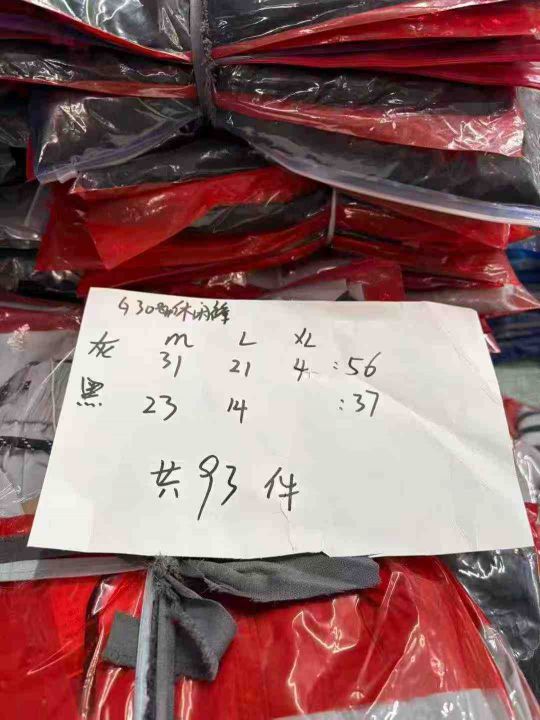 930 休闲裤
M L XL
灰 31 21 4 :56
黑 23 14 :37
共93件